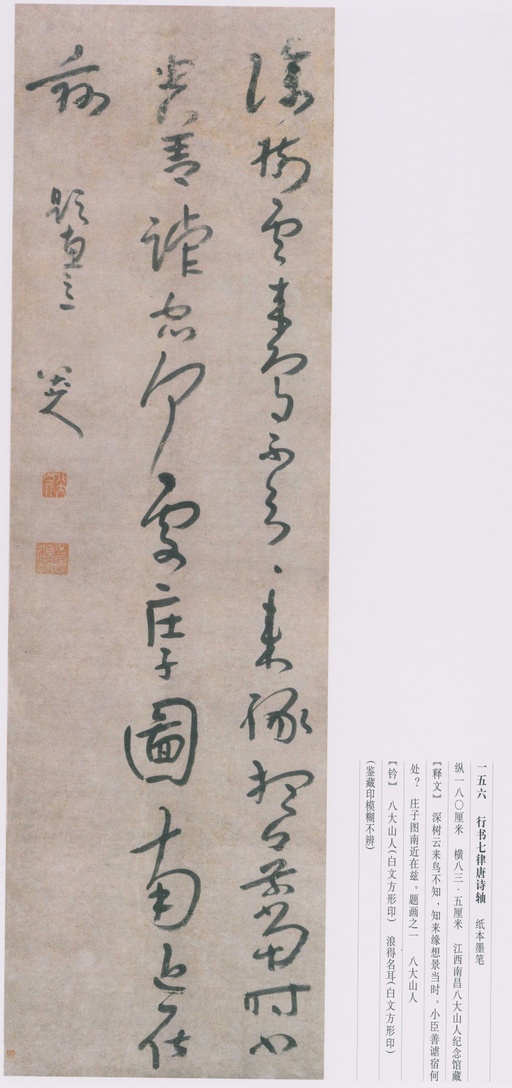 一五六 行书七律唐诗轴 纸本墨笔
纵一八〇厘米 横八三·五厘米 江西南昌八大山人纪念馆藏
【释文】 深树云来鸟不知，知来缘想景当时。小臣善谑宿何
处？ 庄子图南近在兹。题画之一 八大山人
【钤】 八大山人（白文方形印） 浪得名耳（白文方形印）
（鉴藏印模糊不辨）
深樹雲来鳥不知、来緣想景當時小
臣善謔宿何處庄子圖南近在
兹 題畫之一 八大山人
八大山人
浪得名耳